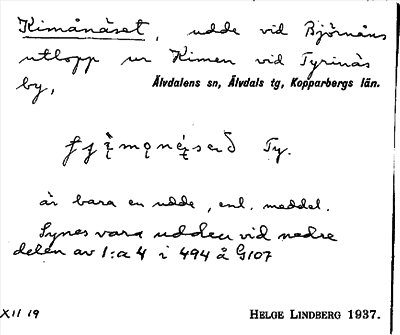 Kimånäset, udde vid Björnåns
utlopp ur Kimen vid Tyrinäs
by,
Älvdalens sn, Älvdals tg, Kopparbergs län.
Ty.
är bara en udde, enl. meddel.
Synes vara udden vid nedre
delen av 1:a 4 i 494 å G107
XII 19
HELGE LINDBERG 1937.